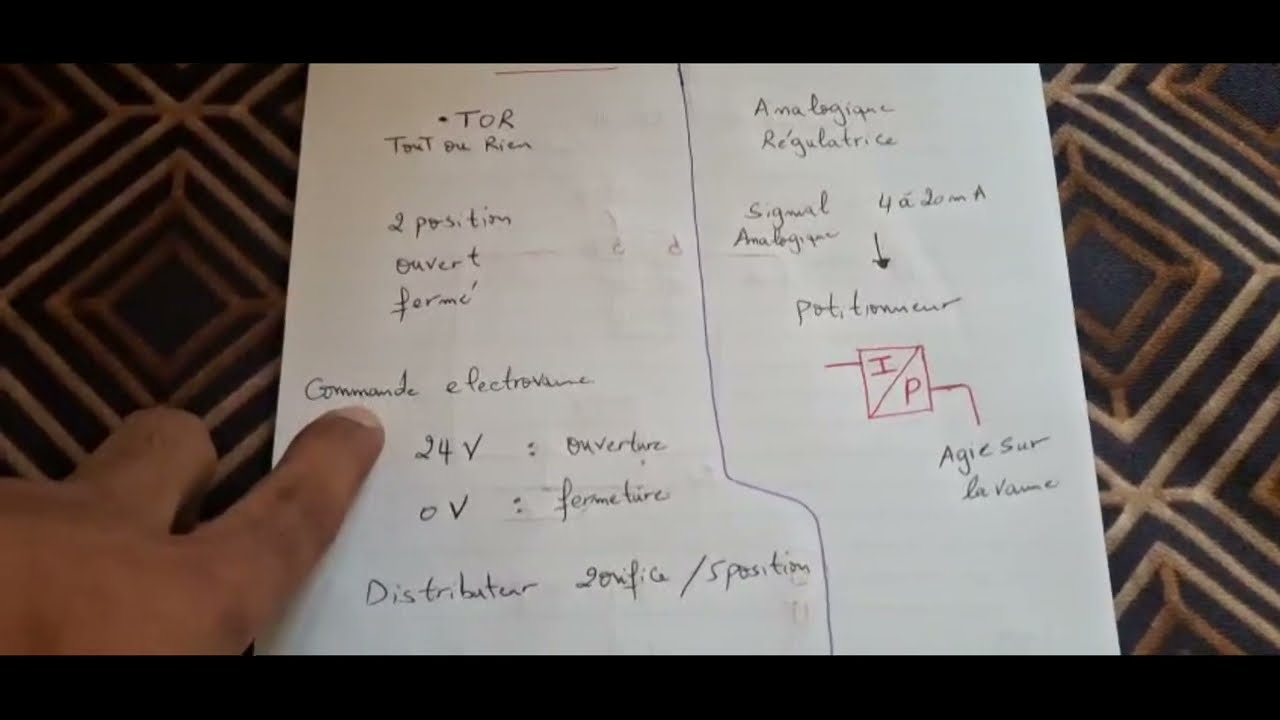 • TOR
TouT ou Rien
2 position
ouvert
fermé
Commande electrovanne
24 V : ouverture
0 V : fermeture
Distributeur 2 orifice / 5 position
Analogique
Régulatrice
Signal 4 à 20 mA
Analogique
potitionneur
I/P
Agie sur
la vanne